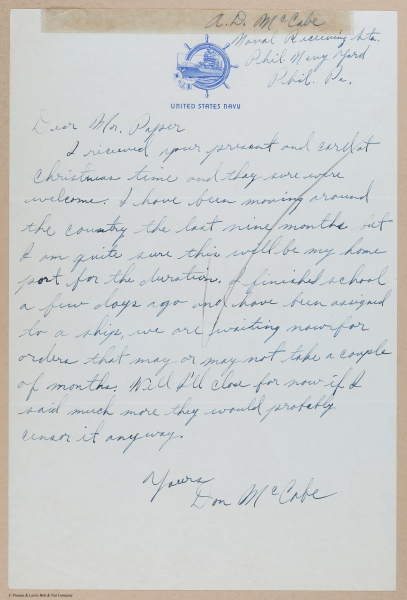 A. D. McCabe
Naval Receiving Sta.
Phil Navy Yard
Phil. Pa.
UNITED STATES NAVY
Dear Mr. Paper
I recieved your present and card at
Christmas time and they sure were
welcome. I have been moving around
the country the last nine months but
I am quite sure this will be my home
port for the duration. I finished school
a few days ago and have been assigned
to a ship, we are waiting now for
orders that may or may not take a couple
of months. Well I'll close for now if I
said much more they would probably
censor it anyway.
Yours
Don McCabe